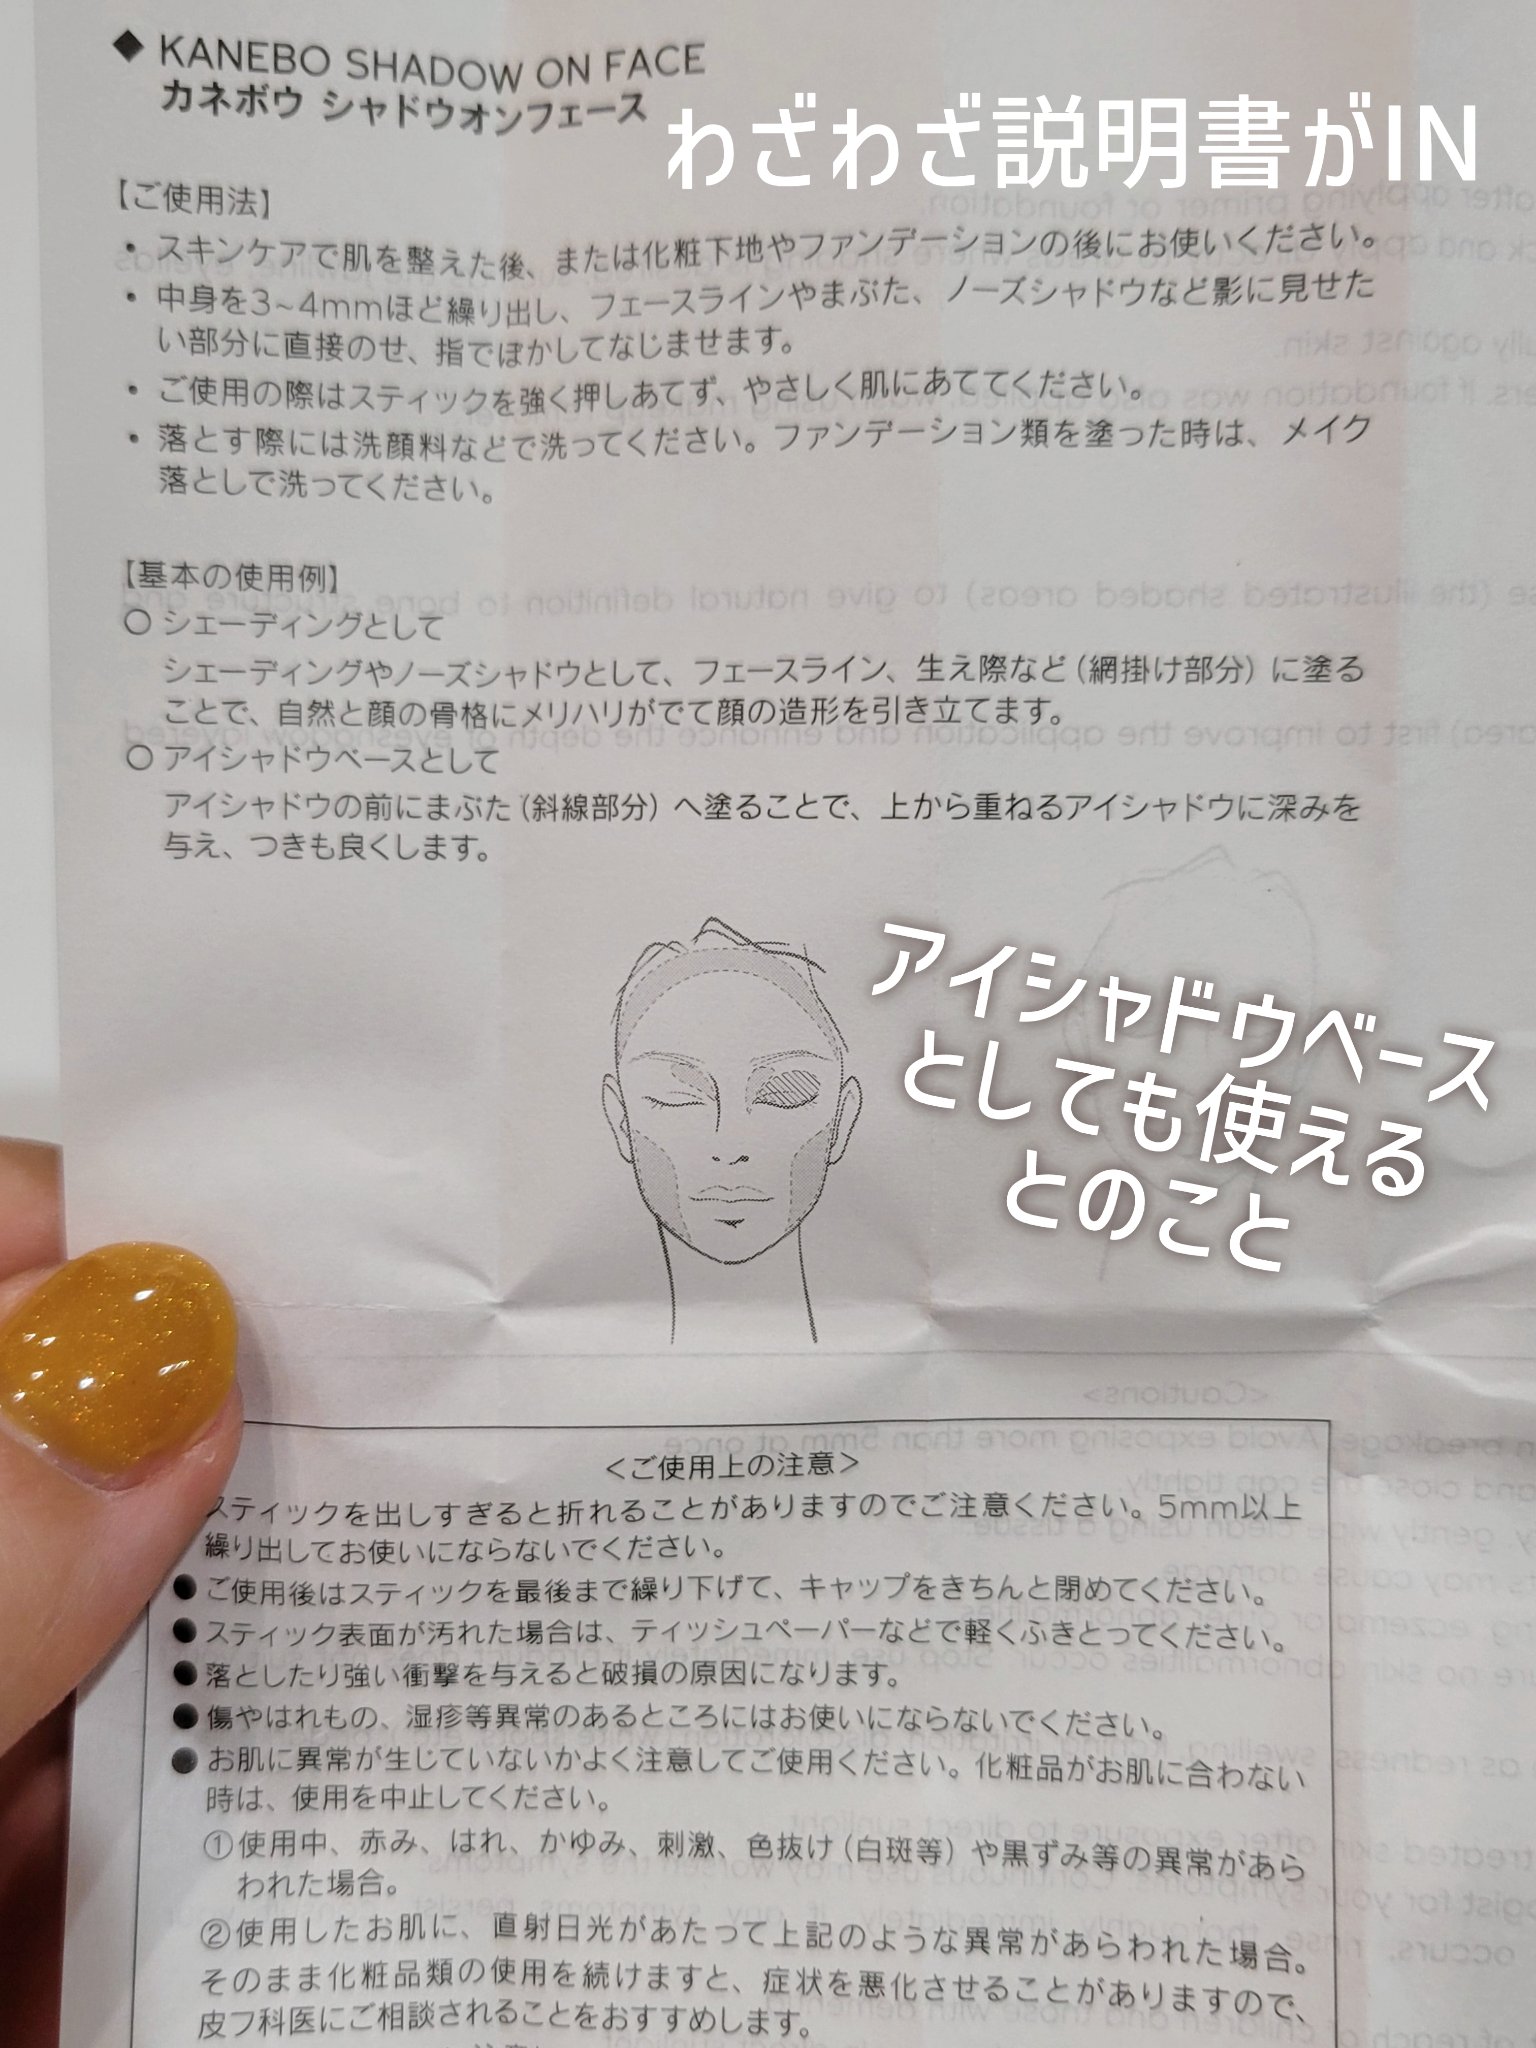 ◆ KANEBO SHADOW ON FACE
カネボウ シャドウオンフェース
わざわざ説明書がIN
【ご使用法】
• スキンケアで肌を整えた後、または化粧下地やファンデーションの後にお使いください。
• 中身を3~4mmほど繰り出し、フェースラインやまぶた、ノーズシャドウなど影に見せた
い部分に直接のせ、指でぼかしてなじませます。
• ご使用の際はスティックを強く押しあてず、やさしく肌にあててください。
• 落とす際には洗顔料などで洗ってください。ファンデーション類を塗った時は、メイク
落としで洗ってください。
【基本の使用例】
○ シェーディングとして
シェーディングやノーズシャドウとして、フェースライン、生え際など（網掛け部分）に塗る
ことで、自然と顔の骨格にメリハリがでて顔の造形を引き立てます。
○ アイシャドウベースとして
アイシャドウの前にまぶた（斜線部分）へ塗ることで、上から重ねるアイシャドウに深みを
与え、つきも良くします。
アイシャドウベース
としても使える
とのこと
<ご使用上の注意>
スティックを出しすぎると折れることがありますのでご注意ください。5mm以上
繰り出してお使いにならないでください。
● ご使用後はスティックを最後まで繰り下げて、キャップをきちんと閉めてください。
● スティック表面が汚れた場合は、ティッシュペーパーなどで軽くふきとってください。
● 落としたり強い衝撃を与えると破損の原因になります。
● 傷やはれもの、湿疹等異常のあるところにはお使いにならないでください。
● お肌に異常が生じていないかよく注意してご使用ください。化粧品がお肌に合わない
時は、使用を中止してください。
①使用中、赤み、はれ、かゆみ、刺激、色抜け（白斑等）や黒ずみ等の異常があら
われた場合。
②使用したお肌に、直射日光があたって上記のような異常があらわれた場合。
そのまま化粧品類の使用を続けますと、症状を悪化させることがありますので、
皮フ科医にご相談されることをおすすめします。